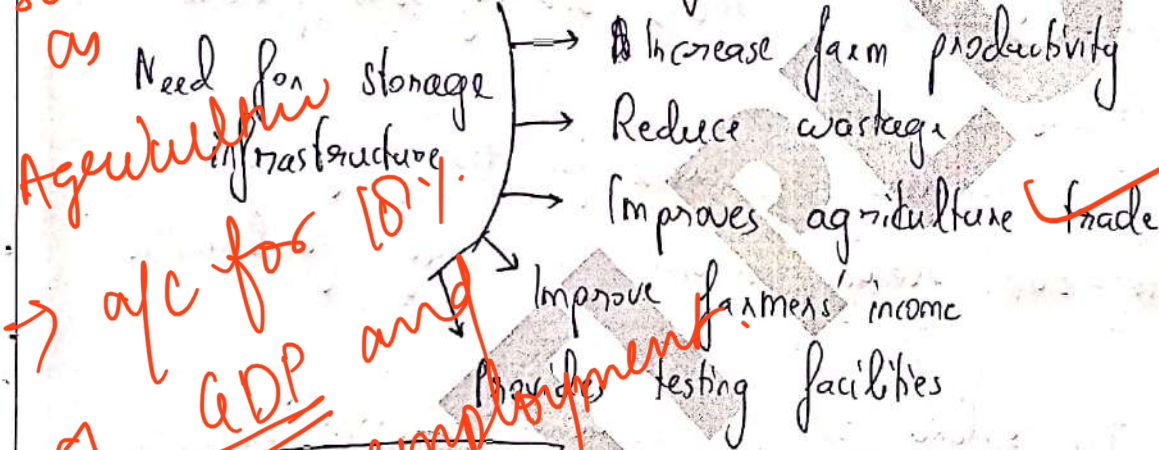 as
Need for storage
infrastructure
→ Increase farm productivity
→ Reduce wastage
→ Improves agriculture trade
Improve farmers' income
Provides testing facilities
Agriculture
→ a/c for 18%
GDP and
employment.